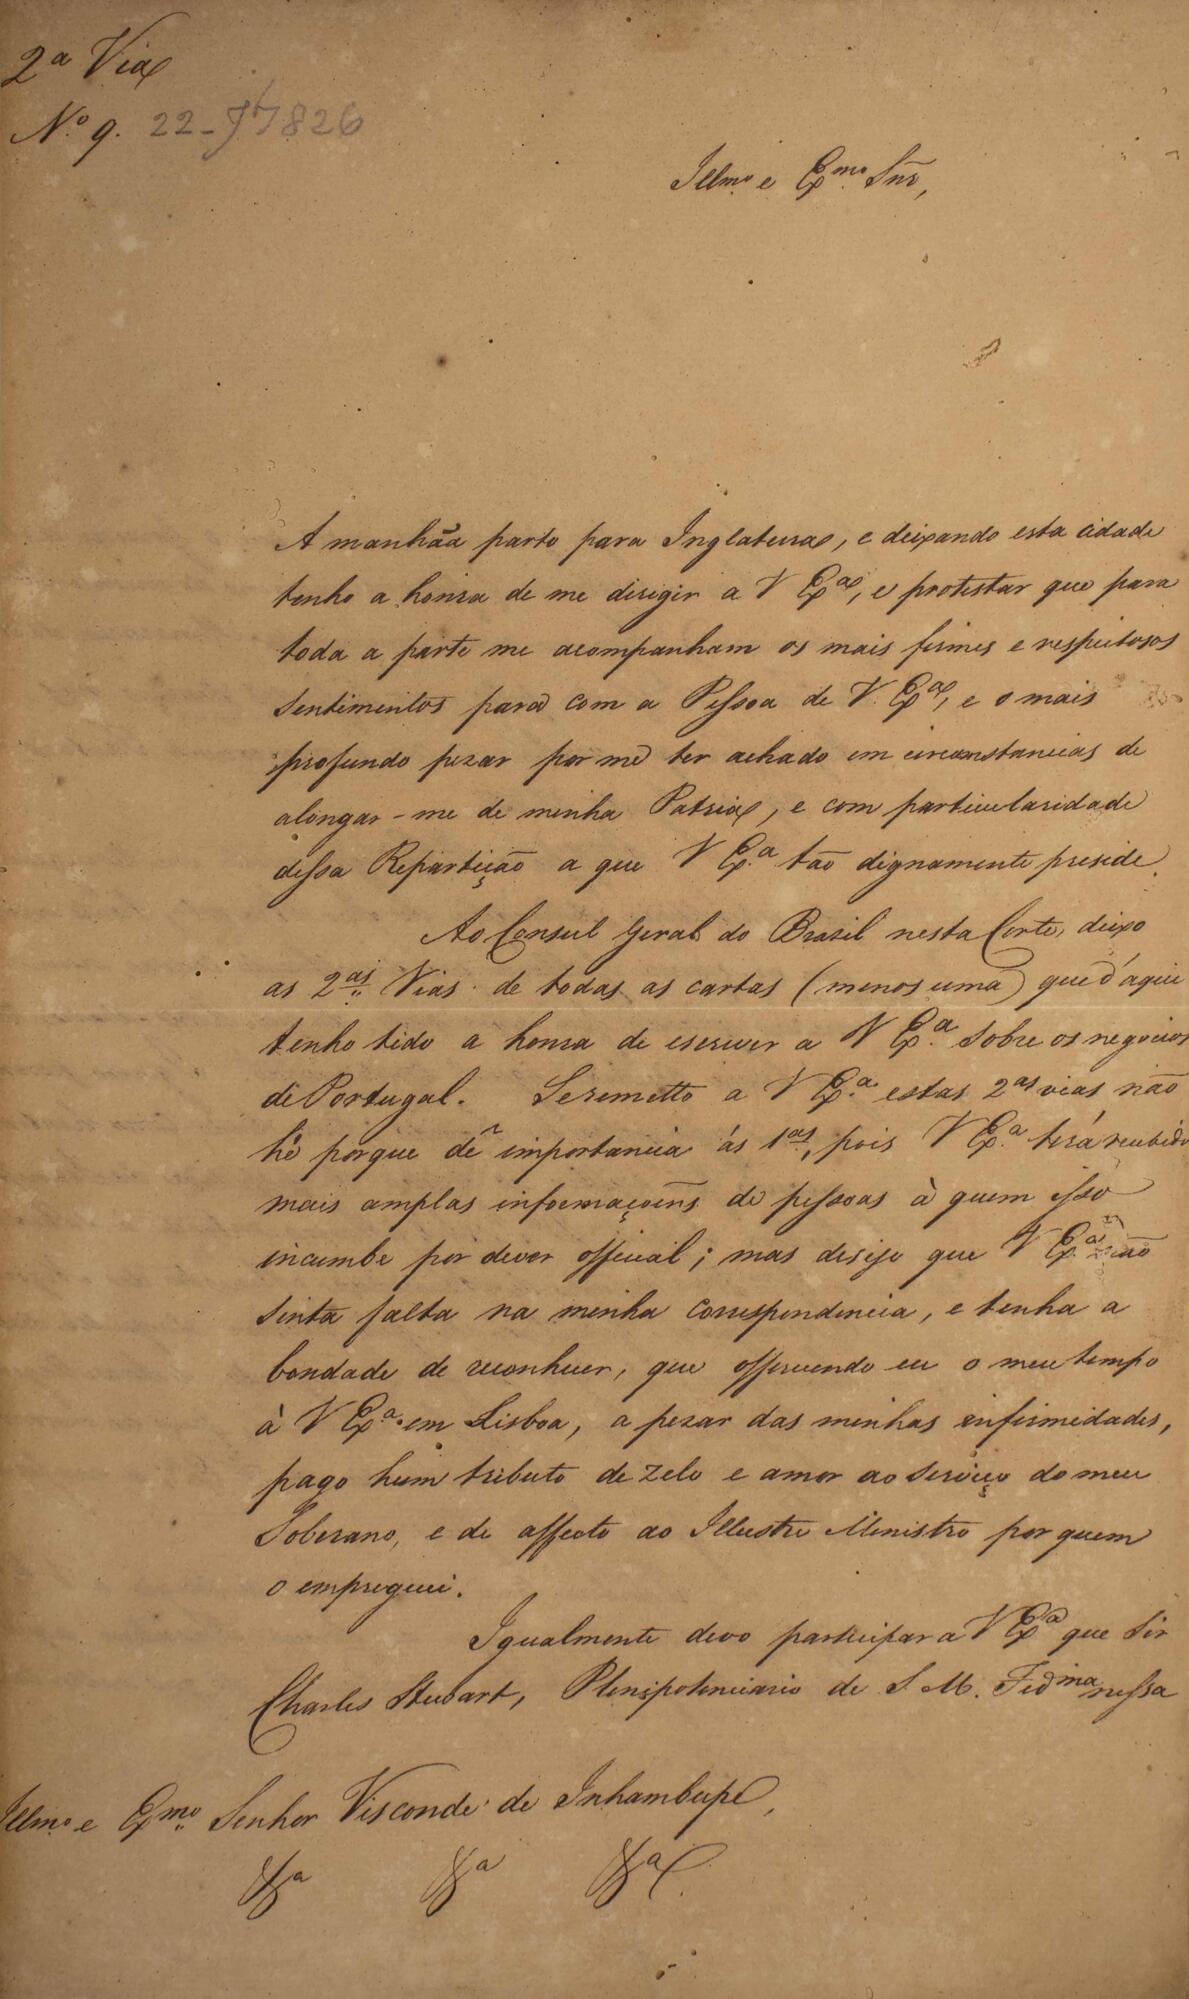 2ª Via
Nº 9. 22-J 7 826
Illmo. e Exmo. Snr,
A manhãa parto para Inglaterra, e deixando esta cidade
tenho a honra de me dirigir a V Exª, e protestar que para
toda a parte me acompanham os mais firmes e respeitosos
sentimentos para com a Pessoa de V. Exª, e o mais
profundo pezar por me ter achado em circonstancias de
alongar-me de minha Patria, e com particularidade
dessa Repartição a que V Exª tão dignamente preside.
Ao Consul Geral do Brazil nesta Corte, deixo
as 2as Vias de todas as cartas (menos uma) que d'aqui
tenho tido a honra de escrever a V Exª sobre os negocios
de Portugal. Se remetto a V Exª estas 2as vias não
hé porque dê importancia ás 1as, pois V Exª terá recebido
mais amplas informaçoens de pessoas à quem isso
incumbe por dever official; mas desejo que V Exª não
sinta falta na minha correspondencia, e tenha a
bondade de reconhecer, que offerecendo eu o meu tempo
à V Exª em Lisboa, a pezar das minhas enfirmidades,
pago hum tributo de zelo e amor ao serviço do meu
Soberano, e de affecto ao Illustre Ministro por quem
o empreguei.
Igualmente devo participar a V Exª que Sir
Charles Stuart, Plenipotenciario de S. M. Fidma nessa
Illmo. e Exmo. Senhor Visconde de Inhambupe,
&ª &ª &ª